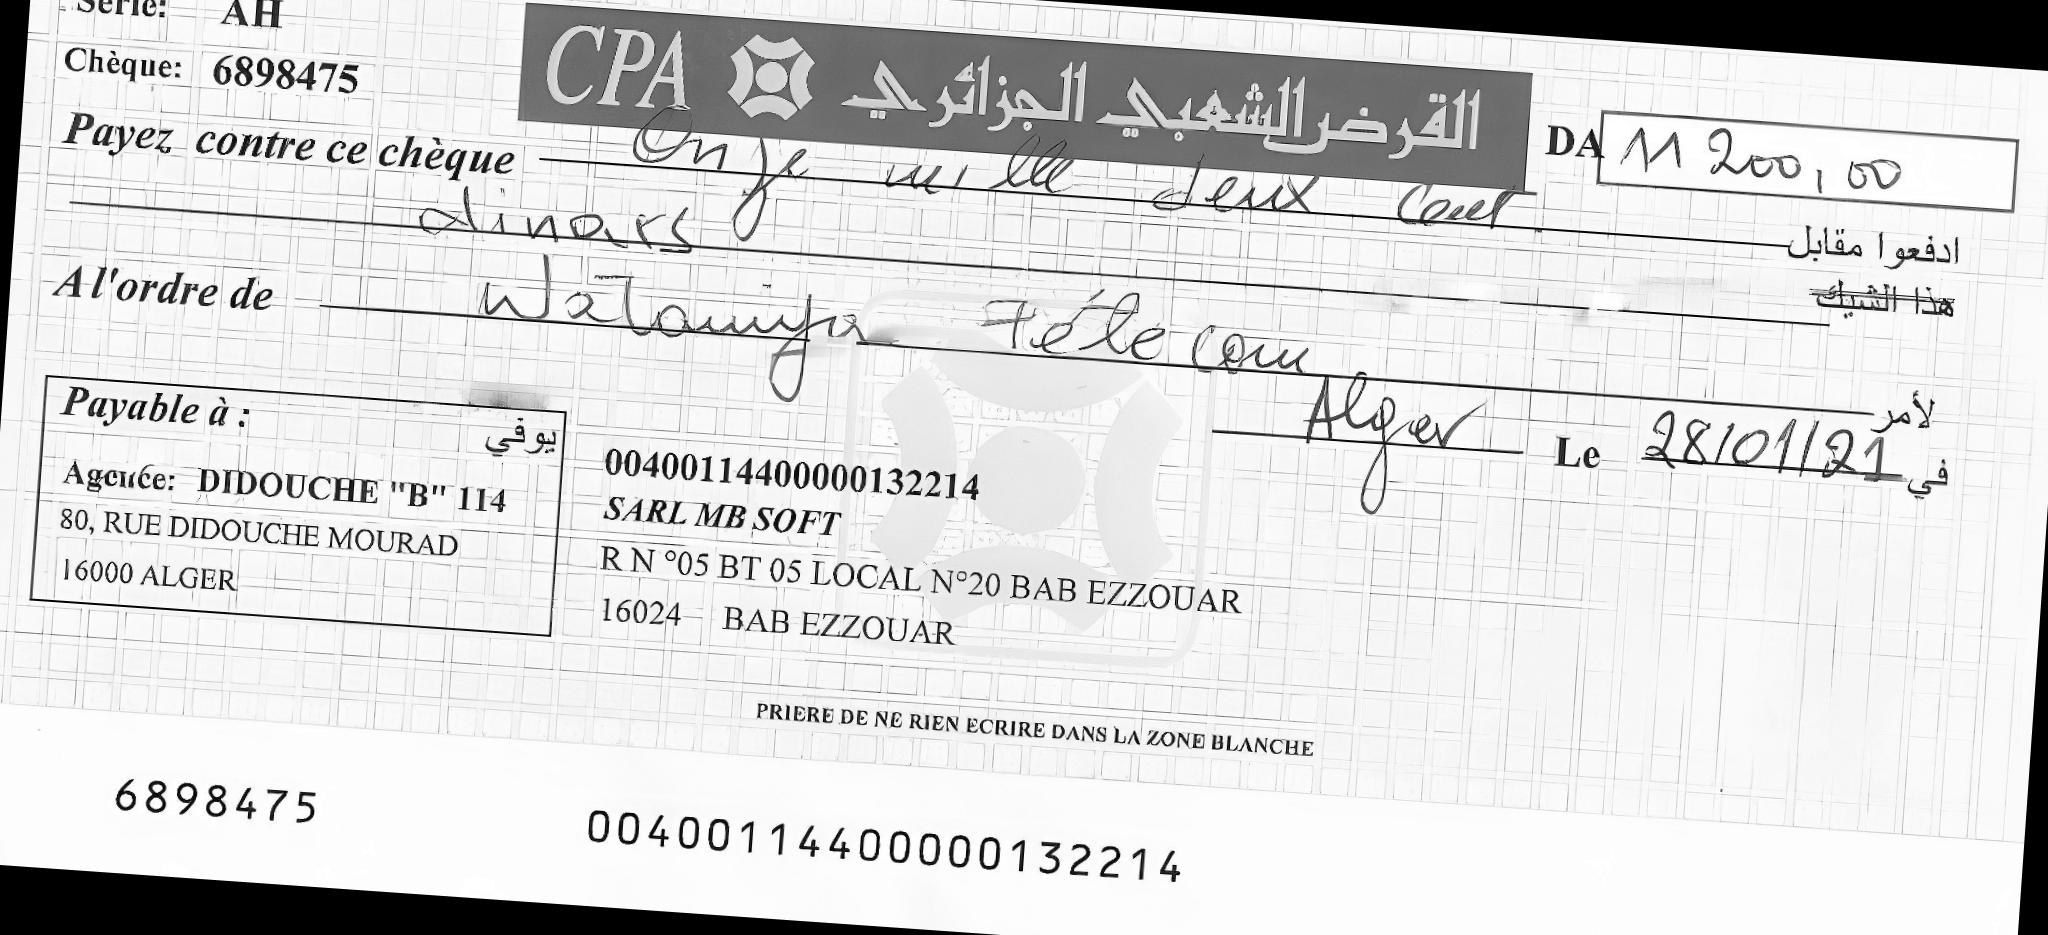 Série: AH
Chèque: 6898475
CPA القرض الشعبي الجزائري
DA 11 200,00
Payez contre ce chèque Onze mille deux cent
ادفعوا مقابل
dinars
هذا الشيك
A l'ordre de Wataniya Télécom
لأمر
Alger Le 28/01/21 في
Payable à :
يوفي
Agence: DIDOUCHE "B" 114
80, RUE DIDOUCHE MOURAD
16000 ALGER
00400114400000132214
SARL MB SOFT
R N °05 BT 05 LOCAL N°20 BAB EZZOUAR
16024 BAB EZZOUAR
PRIERE DE NE RIEN ECRIRE DANS LA ZONE BLANCHE
6898475 00400114400000132214